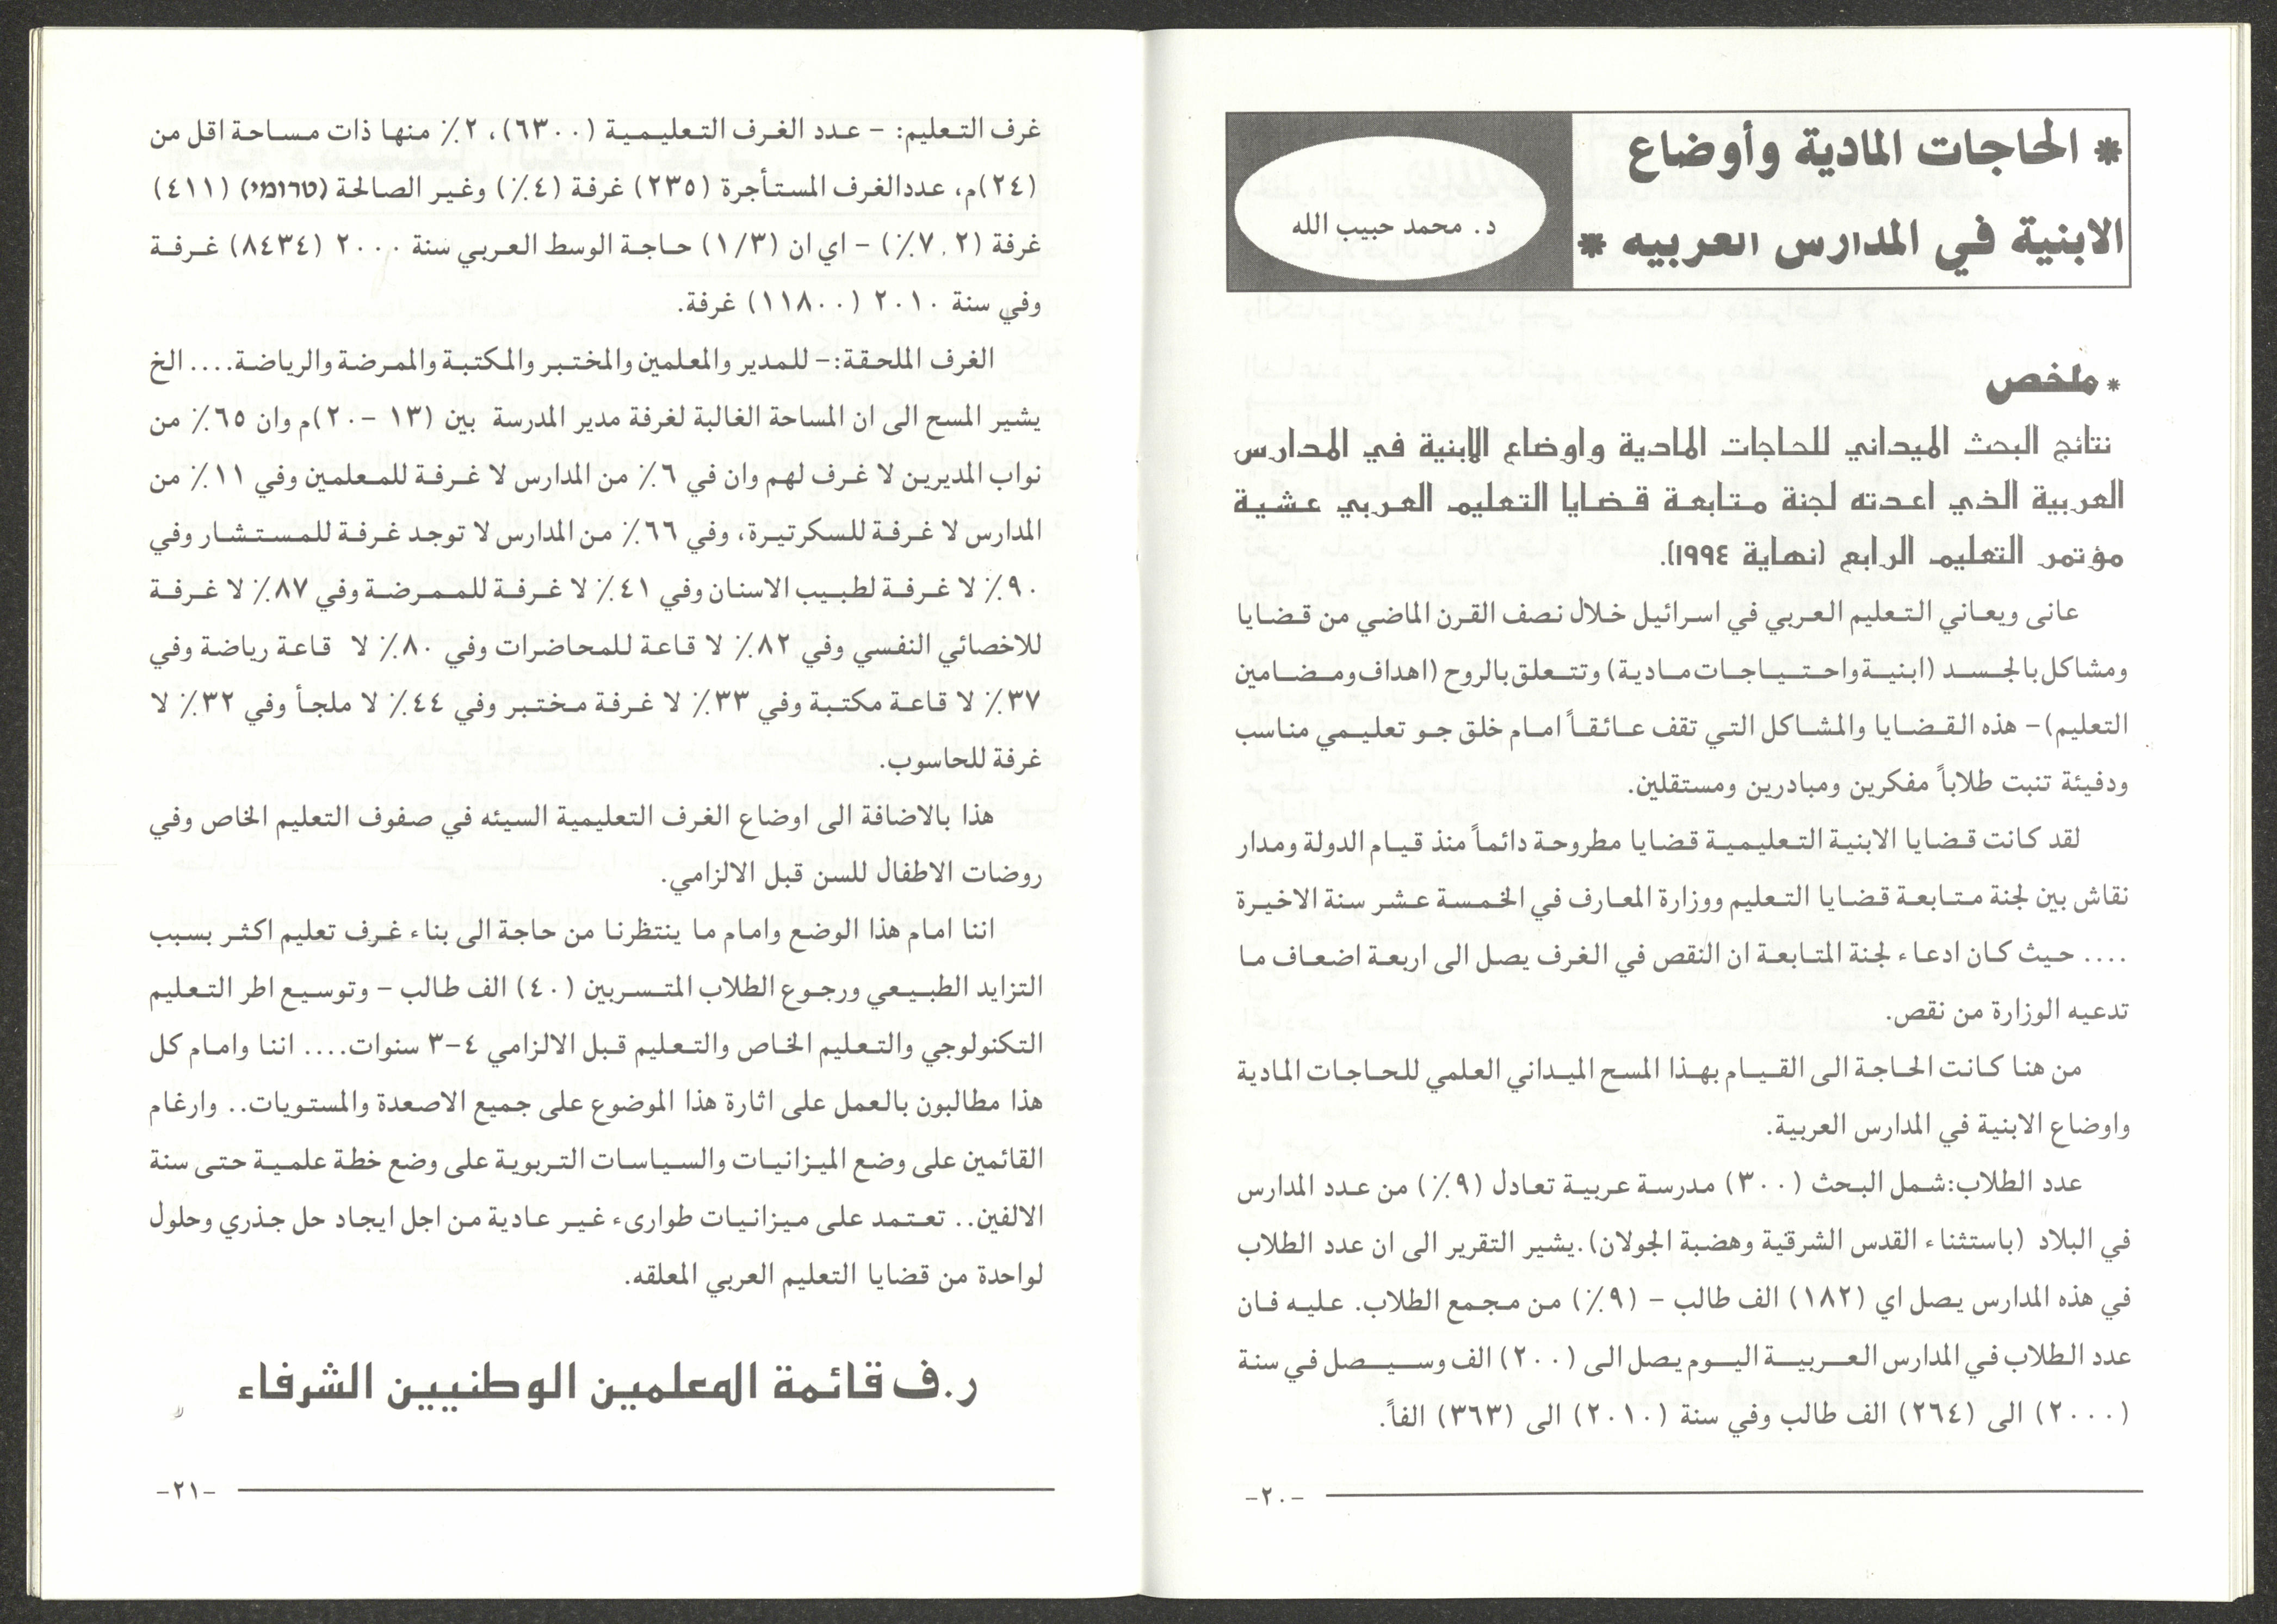 * الحاجات المادية وأوضاع
الابنية في المدارس العربيه *
د. محمد حبيب الله
* ملخص
نتائج البحث الميداني للحاجات المادية واوضاع الابنية في المدارس
العربية الذي اعدته لجنة متابعة قضايا التعليم العربي عشية
مؤتمر التعليم الرابع (نهاية ١٩٩٤).
عانى ويعاني التعليم العربي في اسرائيل خلال نصف القرن الماضي من قضايا
ومشاكل بالجسد (ابنية واحتياجات مادية) وتتعلق بالروح (اهداف ومضامين
التعليم) – هذه القضايا والمشاكل التي تقف عائقاً امام خلق جو تعليمي مناسب
ودفيئة تنبت طلاباً مفكرين ومبادرين ومستقلين.
لقد كانت قضايا الابنية التعليمية قضايا مطروحة دائماً منذ قيام الدولة ومدار
نقاش بين لجنة متابعة قضايا التعليم ووزارة المعارف في الخمسة عشر سنة الاخيرة
.... حيث كان ادعاء لجنة المتابعة ان النقص في الغرف يصل الى اربعة اضعاف ما
تدعيه الوزارة من نقص.
من هنا كانت الحاجة الى القيام بهذا المسح الميداني العلمي للحاجات المادية
واوضاع الابنية في المدارس العربية.
عدد الطلاب:شمل البحث (٣٠٠) مدرسة عربية تعادل (٩٪) من عدد المدارس
في البلاد (باستثناء القدس الشرقية وهضبة الجولان).يشير التقرير الى ان عدد الطلاب
في هذه المدارس يصل اي (١٨٢) الف طالب – (٩٪) من مجمع الطلاب. عليه فان
عدد الطلاب في المدارس العربية اليوم يصل الى (٢٠٠) الف وسيصل في سنة
(٢٠٠٠) الى (٢٦٤) الف طالب وفي سنة (٢٠١٠) الى (٣٦٣) الفاً.
–٢٠–
غرف التعليم: – عدد الغرف التعليمية (٦٣٠٠)، ٢٪ منها ذات مساحة اقل من
(٢٤)م، عددالغرف المستأجرة (٢٣٥) غرفة (٤٪) وغير الصالحة (טרומי) (٤١١)
غرفة (٧,٢٪) – اي ان (١/٣) حاجة الوسط العربي سنة ٢٠٠٠ (٨٤٣٤) غرفة
وفي سنة ٢٠١٠ (١١٨٠٠) غرفة.
الغرف الملحقة:– للمدير والمعلمين والمختبر والمكتبة والممرضة والرياضة.... الخ
يشير المسح الى ان المساحة الغالبة لغرفة مدير المدرسة بين (١٣ –٢٠)م وان ٦٥٪ من
نواب المديرين لا غرف لهم وان في ٦٪ من المدارس لا غرفة للمعلمين وفي ١١٪ من
المدارس لا غرفة للسكرتيرة، وفي ٦٦٪ من المدارس لا توجد غرفة للمستشار وفي
٩٠٪ لا غرفة لطبيب الاسنان وفي ٤١٪ لا غرفة للممرضة وفي ٨٧٪ لا غرفة
للاخصائي النفسي وفي ٨٢٪ لا قاعة للمحاضرات وفي ٨٠٪ لا قاعة رياضة وفي
٣٧٪ لا قاعة مكتبة وفي ٣٣٪ لا غرفة مختبر وفي ٤٤٪ لا ملجأ وفي ٣٢٪ لا
غرفة للحاسوب.
هذا بالاضافة الى اوضاع الغرف التعليمية السيئه في صفوف التعليم الخاص وفي
روضات الاطفال للسن قبل الالزامي.
اننا امام هذا الوضع وامام ما ينتظرنا من حاجة الى بناء غرف تعليم اكثر بسبب
التزايد الطبيعي ورجوع الطلاب المتسربين (٤٠) الف طالب – وتوسيع اطر التعليم
التكنولوجي والتعليم الخاص والتعليم قبل الالزامي ٤–٣ سنوات.... اننا وامام كل
هذا مطالبون بالعمل على اثارة هذا الموضوع على جميع الاصعدة والمستويات.. وارغام
القائمين على وضع الميزانيات والسياسات التربوية على وضع خطة علمية حتى سنة
الالفين.. تعتمد على ميزانيات طوارىء غير عادية من اجل ايجاد حل جذري وحلول
لواحدة من قضايا التعليم العربي المعلقه.
ر.ف قائمة المعلمين الوطنيين الشرفاء
–٢١–